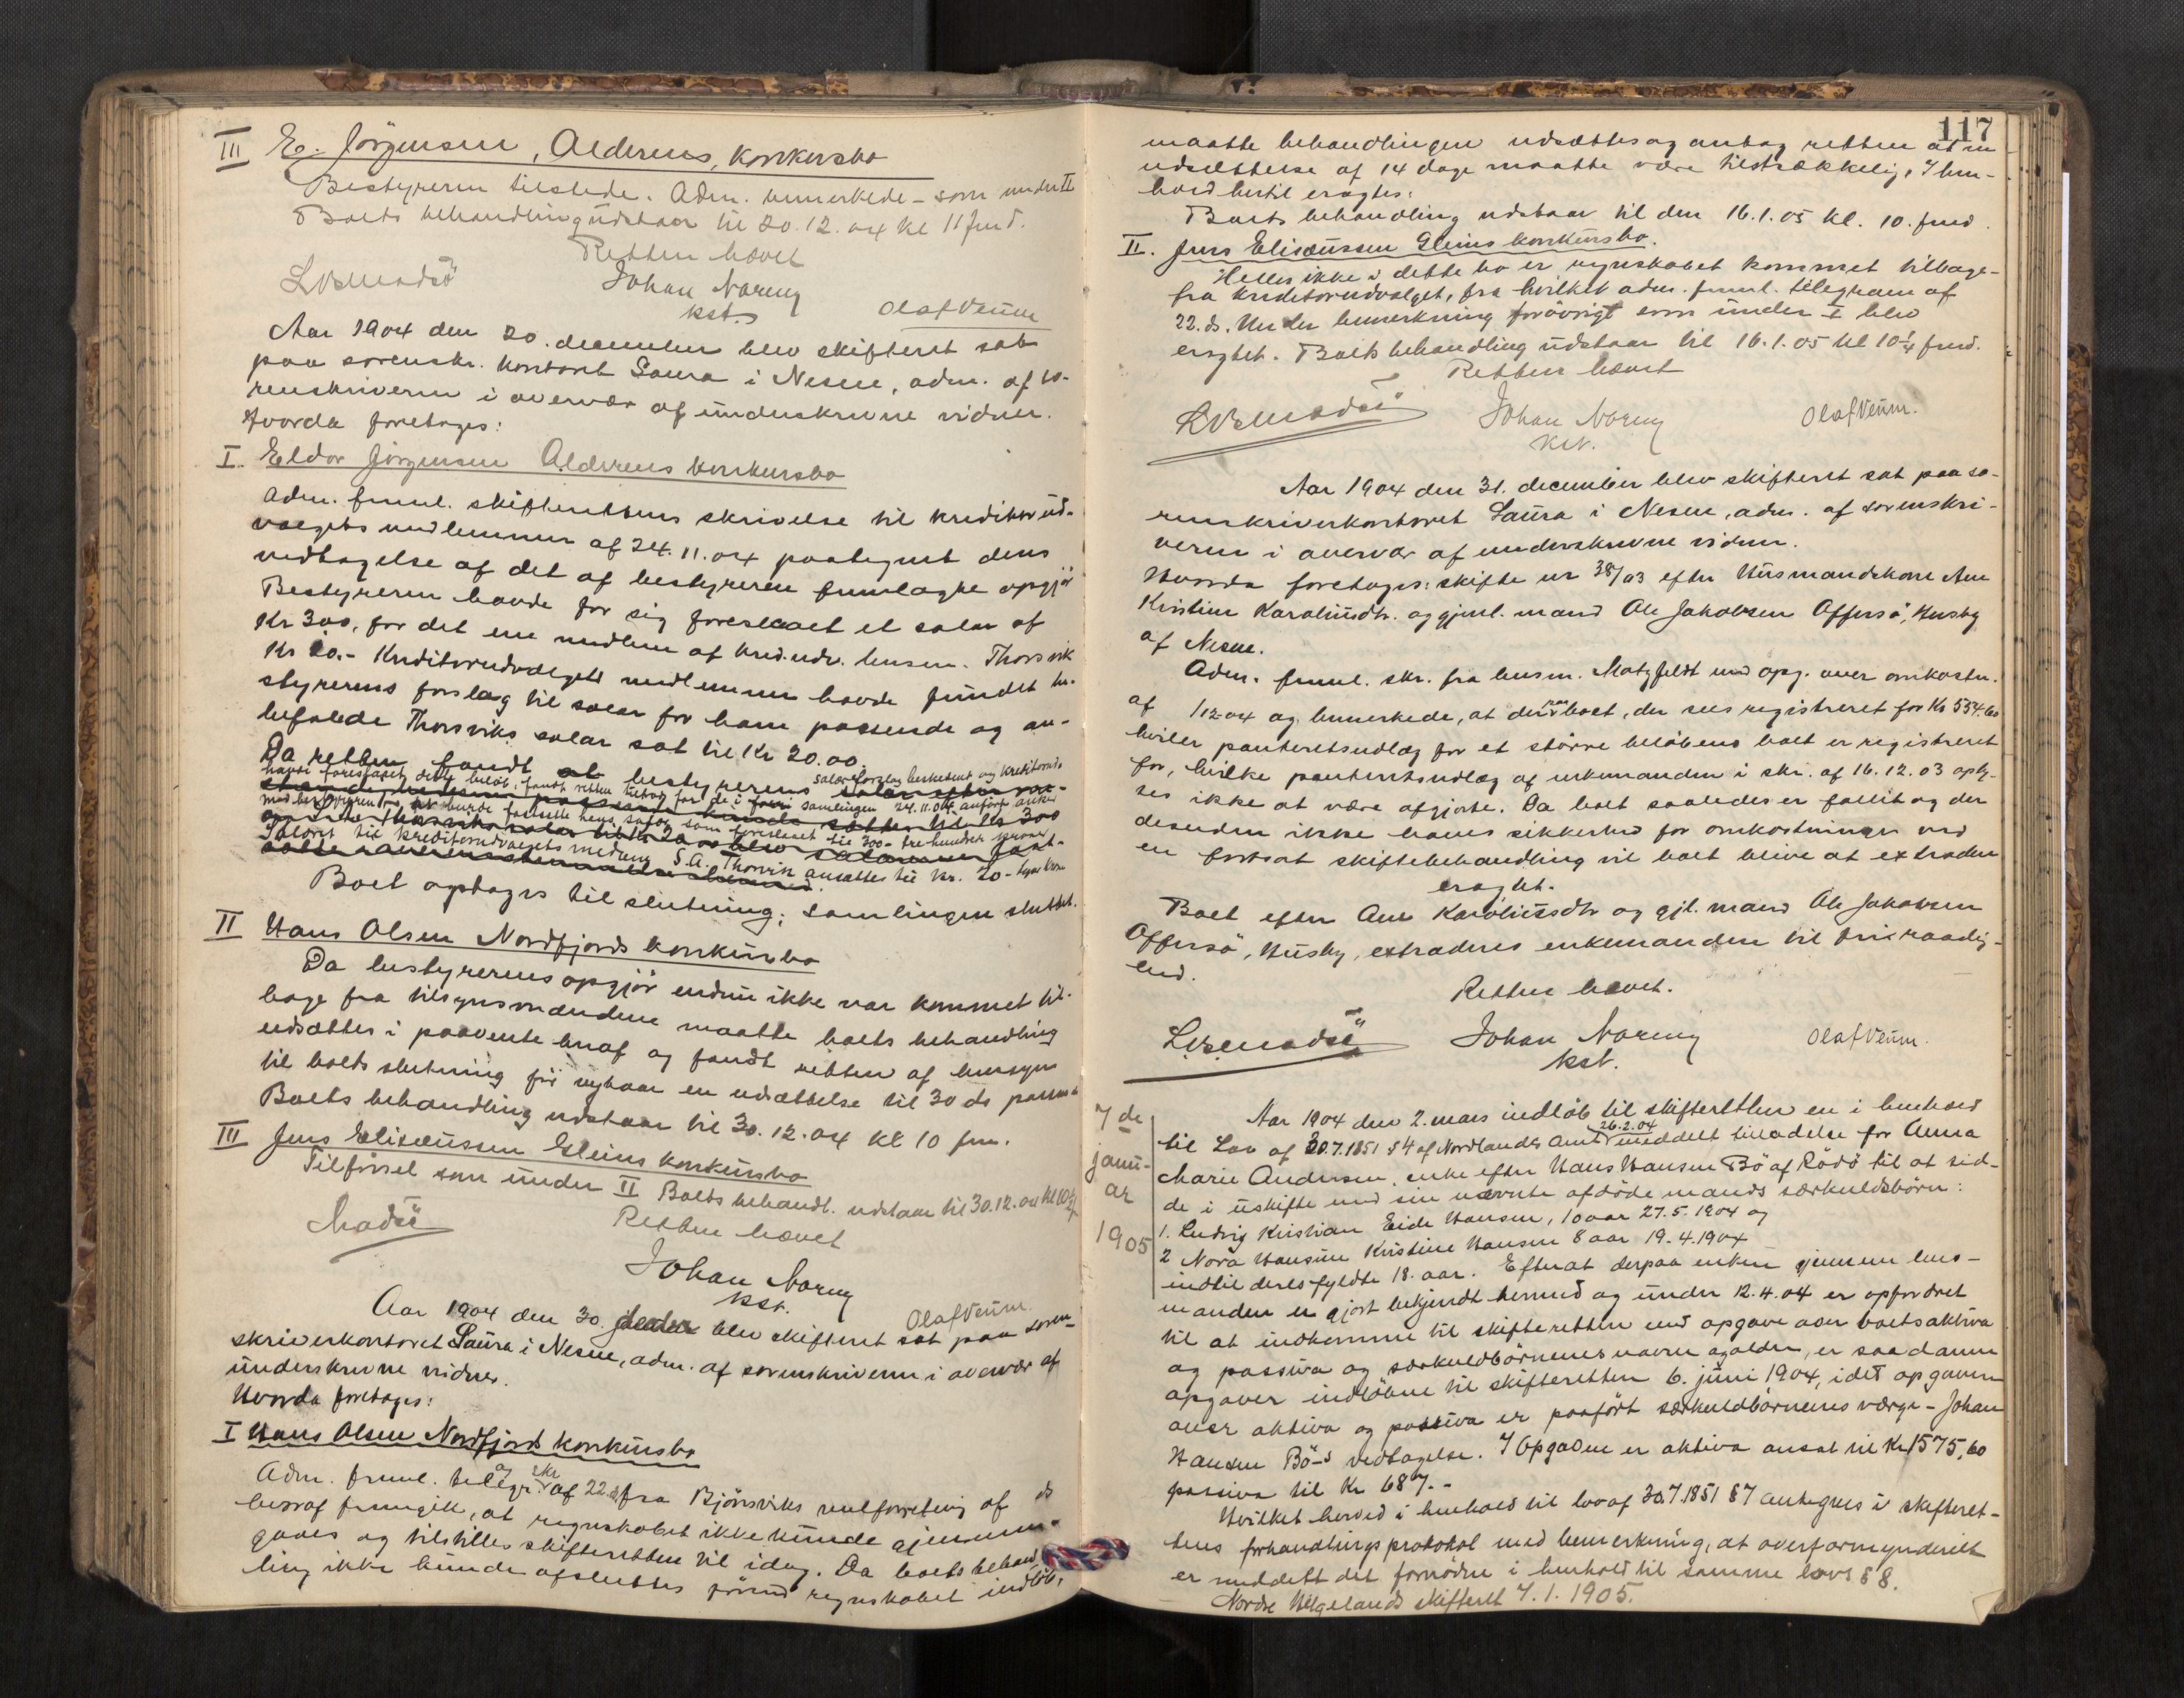 III E. Jörgensen, Alderens, konkursbo
Bestyreren tilstede. Adm. bemerkede - som under II
Boets behandling udstaar til 20.12.04 kl 11 fmd.
Retten hævet
Johan Noreng
kst.
Olaf Veüm
Aar 1904 den 20. december blev skifteret sat
paa sorenskr. kontoret Saura i Nesne, adm. af so-
renskriveren i overvær af underskrevne vidner.
Hvorda foretoges:
I. Eldor Jörgensen Alderens konkursbo
Adm. freml. skifterettens skrivelse til kreditorud-
valgets medlemmer af 24.11.04 paategnet dens
vedtagelse af det af bestyreren fremlagte opgjör
Bestyreren havde for sig foreslaaet et salær af
Kr 300, for det ene medlem af kred.udv. lensm. Thorsvik
Kr 20.- Kreditorudvalgets medlemmer havde fundet be-
styrerens forslag til salær for ham passende og an-
befalede Thorsviks salær sat til Kr 20.00.
Da retten fandt bestyrerens salærforslag beskedent og kreditorudv
havde foreslaaet dette beløb, fandt retten tiltrods for de i samlingen 24.11.04 anførte anker
mod bestyreren at burde fastsætte hans salær som foreslaaet til 300- trehundrede kroner
Salæret til kreditorudvalgets medlem S.A. Thorsvik ansættes til kr. 20- tyve kroner
Boet optages til slutning; Samlingen sluttet.
II Hans Olsen Nordfjords konkursbo
Da bestyrerens opgjör endnu ikke var kommet til-
bage fra tilsynsmændene maatte boets behandling
udsættes i paavente heraf og fandt retten af hensyn
til boets slutning för nytaar en udsættelse til 30 ds passende
Boets behandling udstaar til 30.12.04 kl 10 fm.
III Jens Elisæussen Gleins konkursbo
Tilförsel som under II Boets behandl. udstaar til 30.12.04 kl 10¼
Retten hævet
Madsö
Johan Noreng
kst.
Olaf Veüm.
Aar 1904 den 30. blev skifteret sat paa soren-
skriverkontoret Saura i Nesne, adm. af sorenskriveren i overvær af
underskrevne vidner.
Hvorda foretoges:
I Hans Olsen Nordfjords konkursbo
Adm. freml. telegr. og skr af 22. ds fra Bjönsviks
heraf fremgik, at regnskabet ikke kunde gjennem-
gaaes og tilstilles skifteretten til idag. Da boets behand-
ling ikke kunde afsluttes förend regnskabet indlöb,
117
maatte behandlingen udsættes og antog retten at en
udsættelse af 14 dage maatte være tilstrækkelig, I hen-
hold hertil eragtes:
Boets behandling udstaar til den 16.1.05 kl. 10. fmd.
II. Jens Elisæussen Gleins konkursbo.
Heller ikke i dette bo er regnskabet kommet tilbage
fra kreditorudvalget, fra hvilket adm. freml. telegram af
22. ds. Under bemerkning forövrigt som under I blev
eragtet. Boets behandling udstaar til 16.1.05 kl 10¼ fmd.
Retten hævet
Johan Noreng
kst.
Olaf Veüm.
Aar 1904 den 31. december blev skifteret sat paa so-
renskriverkontoret Saura i Nesne, adm. af sorenskri-
veren i overvær af underskrevne vidner.
Hvorda foretoges: skifte nr 38/03 efter Husmandskone Ane
Kristine Karoliusdtr. og gjenl. mand Ole Jakobsen Offersö, Husby
af Nesne.
Adm. freml. skr. fra lensm. Motzfeldt med opg. over omkostn.
af 1.12.04 og bemerkede, at der paa boet, der sees registreret for Kr 554.60
hviler panteretsudlæg for et större belöb end boet er registreret
for, hvilke panteretsudlæg af enkemanden i skr. af 16.12.03 oply-
ses ikke at være afgjorte. Da boet saaledes er fallit og der
desuden ikke haves sikkerhed for omkostninger ved
en fortsat skiftebehandling vil boet blive at extradere
eragtet.
Boet efter Ane Karoliusdtr og gjl. mand Ole Jakobsen
Offersö, Husby, extraderes enkemanden til fri raadig-
hed.
Retten hævet.
Johan Noreng
kst.
Olaf Veüm.
7de
janu-
ar
1905
Aar 1904 den 2. mars indlöb til skifteretten en i henhold
til Lov af 30.7.1851 § 4 af Nordlands amt 26.2.04 meddelt tilladelse for Anna
Marie Andersen, enke efter Hans Hansen Bö af Rödö til at sid-
de i uskifte med sin nævnte afdöde mands særkuldsbörn:
1. Ludvig Kristian Eide Hansen, 10 aar 27.5.1904 og
2 Nora Hansine Kristine Hansen 8 aar 19.4.1904
indtil deres fyldte 18. aar. Efterat derpaa enken gjennem lens-
manden er gjort bekjendt hermed og under 12.4.04 er opfordret
til at indkomme til skifteretten med opgave over boets aktiva
og passiva og særkuldbörnenes navne og alder, er saadanne
opgaver indlöbne til skifteretten 6. juni 1904, idet opgaven
over aktiva og passiva er paafört særkuldbörnenes værge - Johan
Hansen Bö-s vedtagelse. I Opgaven er aktiva ansat til Kr 1575,60
passiva til Kr 687.-
Hvilket herved i henhold til lov af 30.7.1851 § 7 antegnes i skifteret-
tens forhandlingsprotokol med bemerkning, at overformynderiet
er meddelt det fornödne i henhold til samme lovs § 8.
Nordre Helgelands skifteret 7.1.1905.